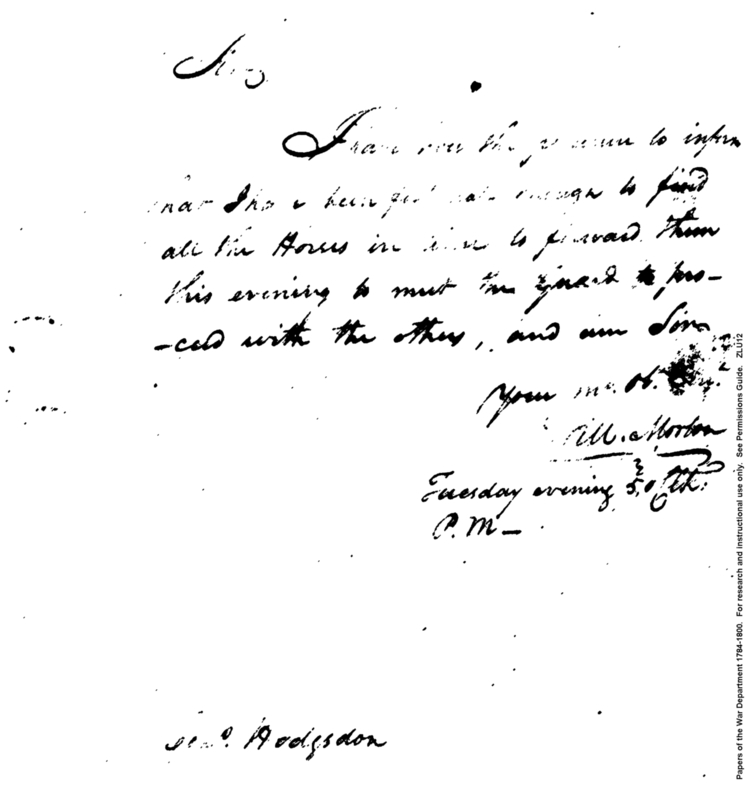 Sir
I have now the pleasure to inform
that I have been fortunate enough to find
all the Horses in time to forward them
this evening to meet the Guard to pro-
-ceed with the others, and am Sir
Your mo. ob.
Morton
Tuesday evening 5 o'Clk.
P.M—
Hodgsdon
Papers of the War Department 1784-1800. For research and instructional use only. See Permissions Guide. ZLU12